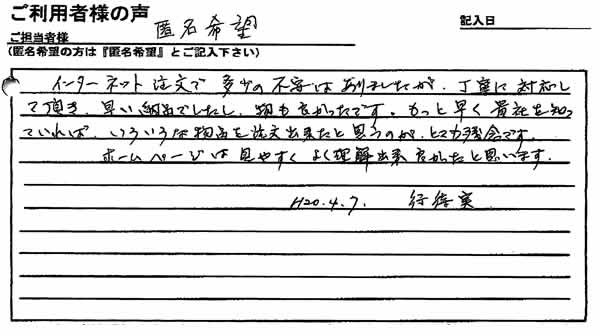 ご利用者様の声
ご担当者様 匿名希望
記入日
(匿名希望の方は『匿名希望』とご記入下さい)
インターネット注文で多少の不安はありましたが、丁寧に対応し
て頂き、早い納品でしたし、物も良かったです。もっと早く貴社を知っ
ていれば、いろいろな物品を注文出来たと思うのが、とても残念です。
ホームページは見やすくよく理解出来良かったと思います。
H20.4.7.